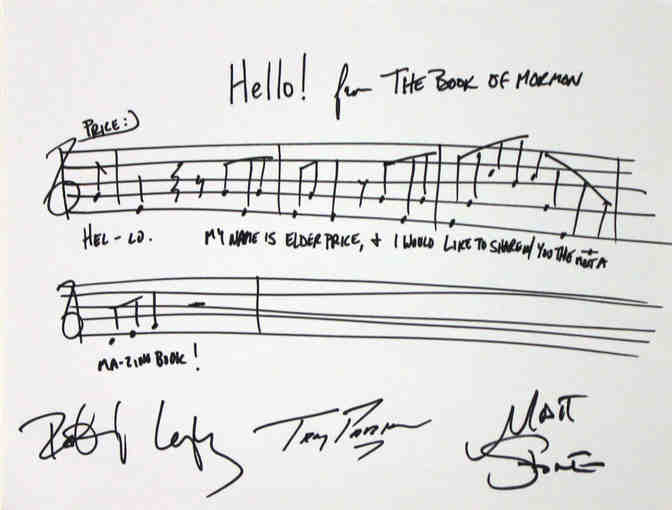 Hello! from THE BOOK OF MORMON
PRICE:
HEL-LO. MY NAME IS ELDER PRICE, + I WOULD LIKE TO SHARE W/ YOU THE MOST A
MA-ZING BOOK!
Trey Parker
MATT
STONE